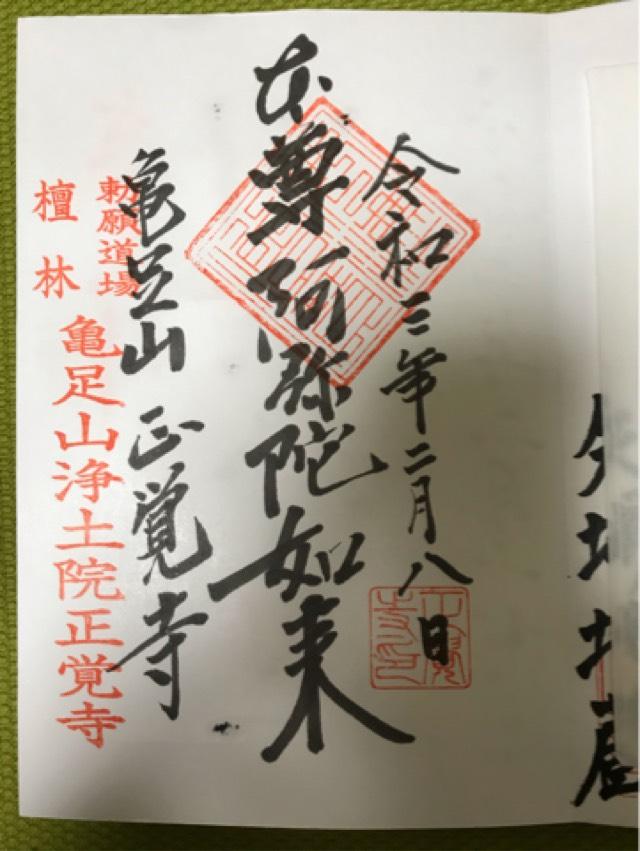 令和三年二月八日
本尊阿弥陀如来
亀足山正覚寺
勅願道場
檀林
亀足山浄土院正覚寺